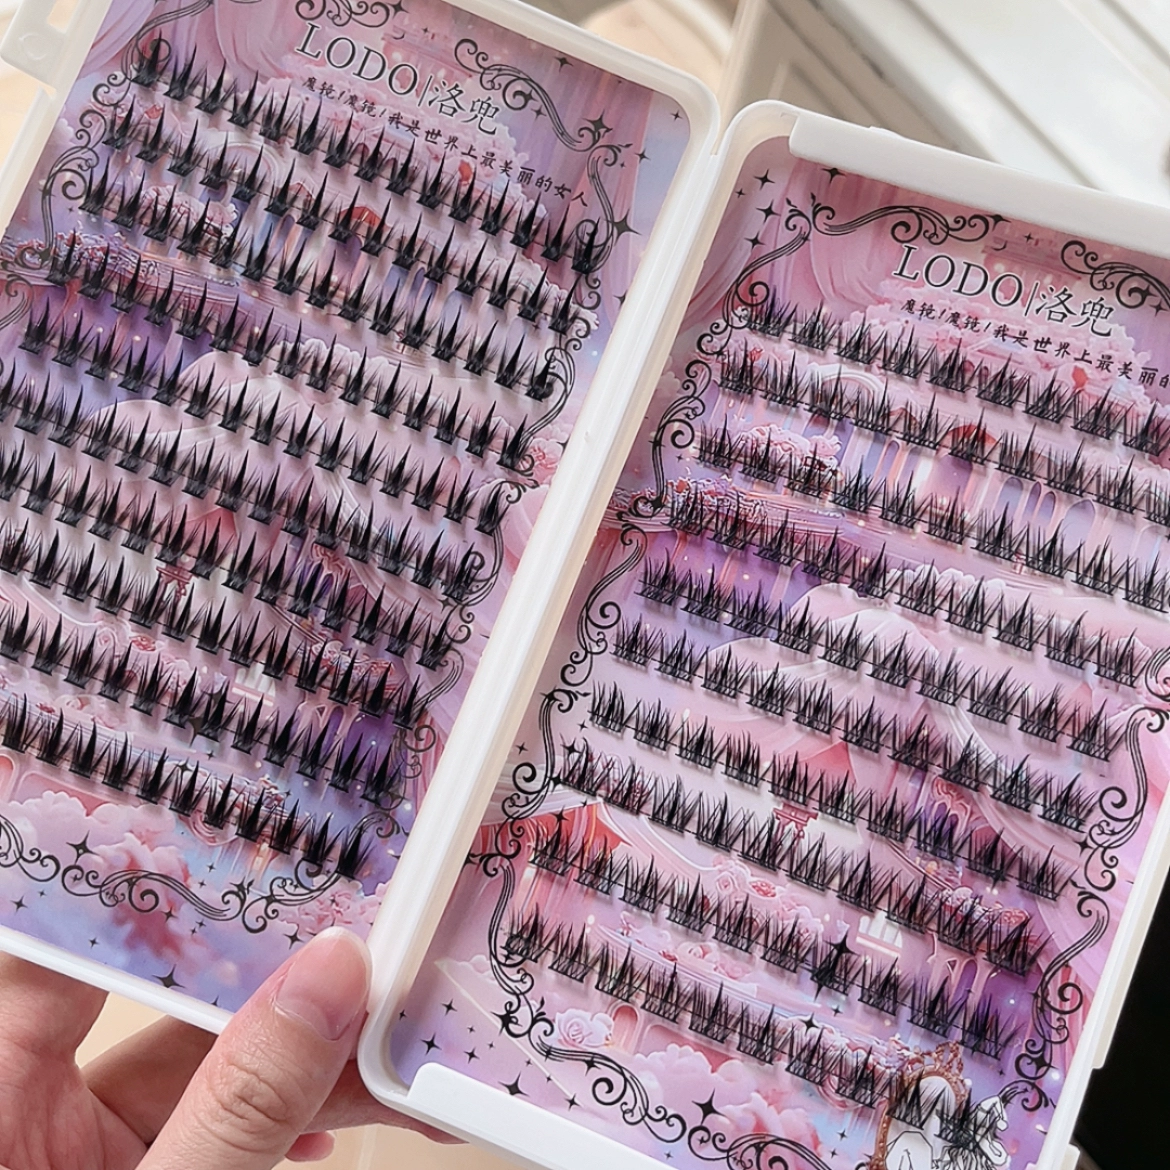 LODO|洛兜
魔镜/魔镜/我是世界上最美丽的女人
LODO|洛兜
魔镜/魔镜/我是世界上最美丽的